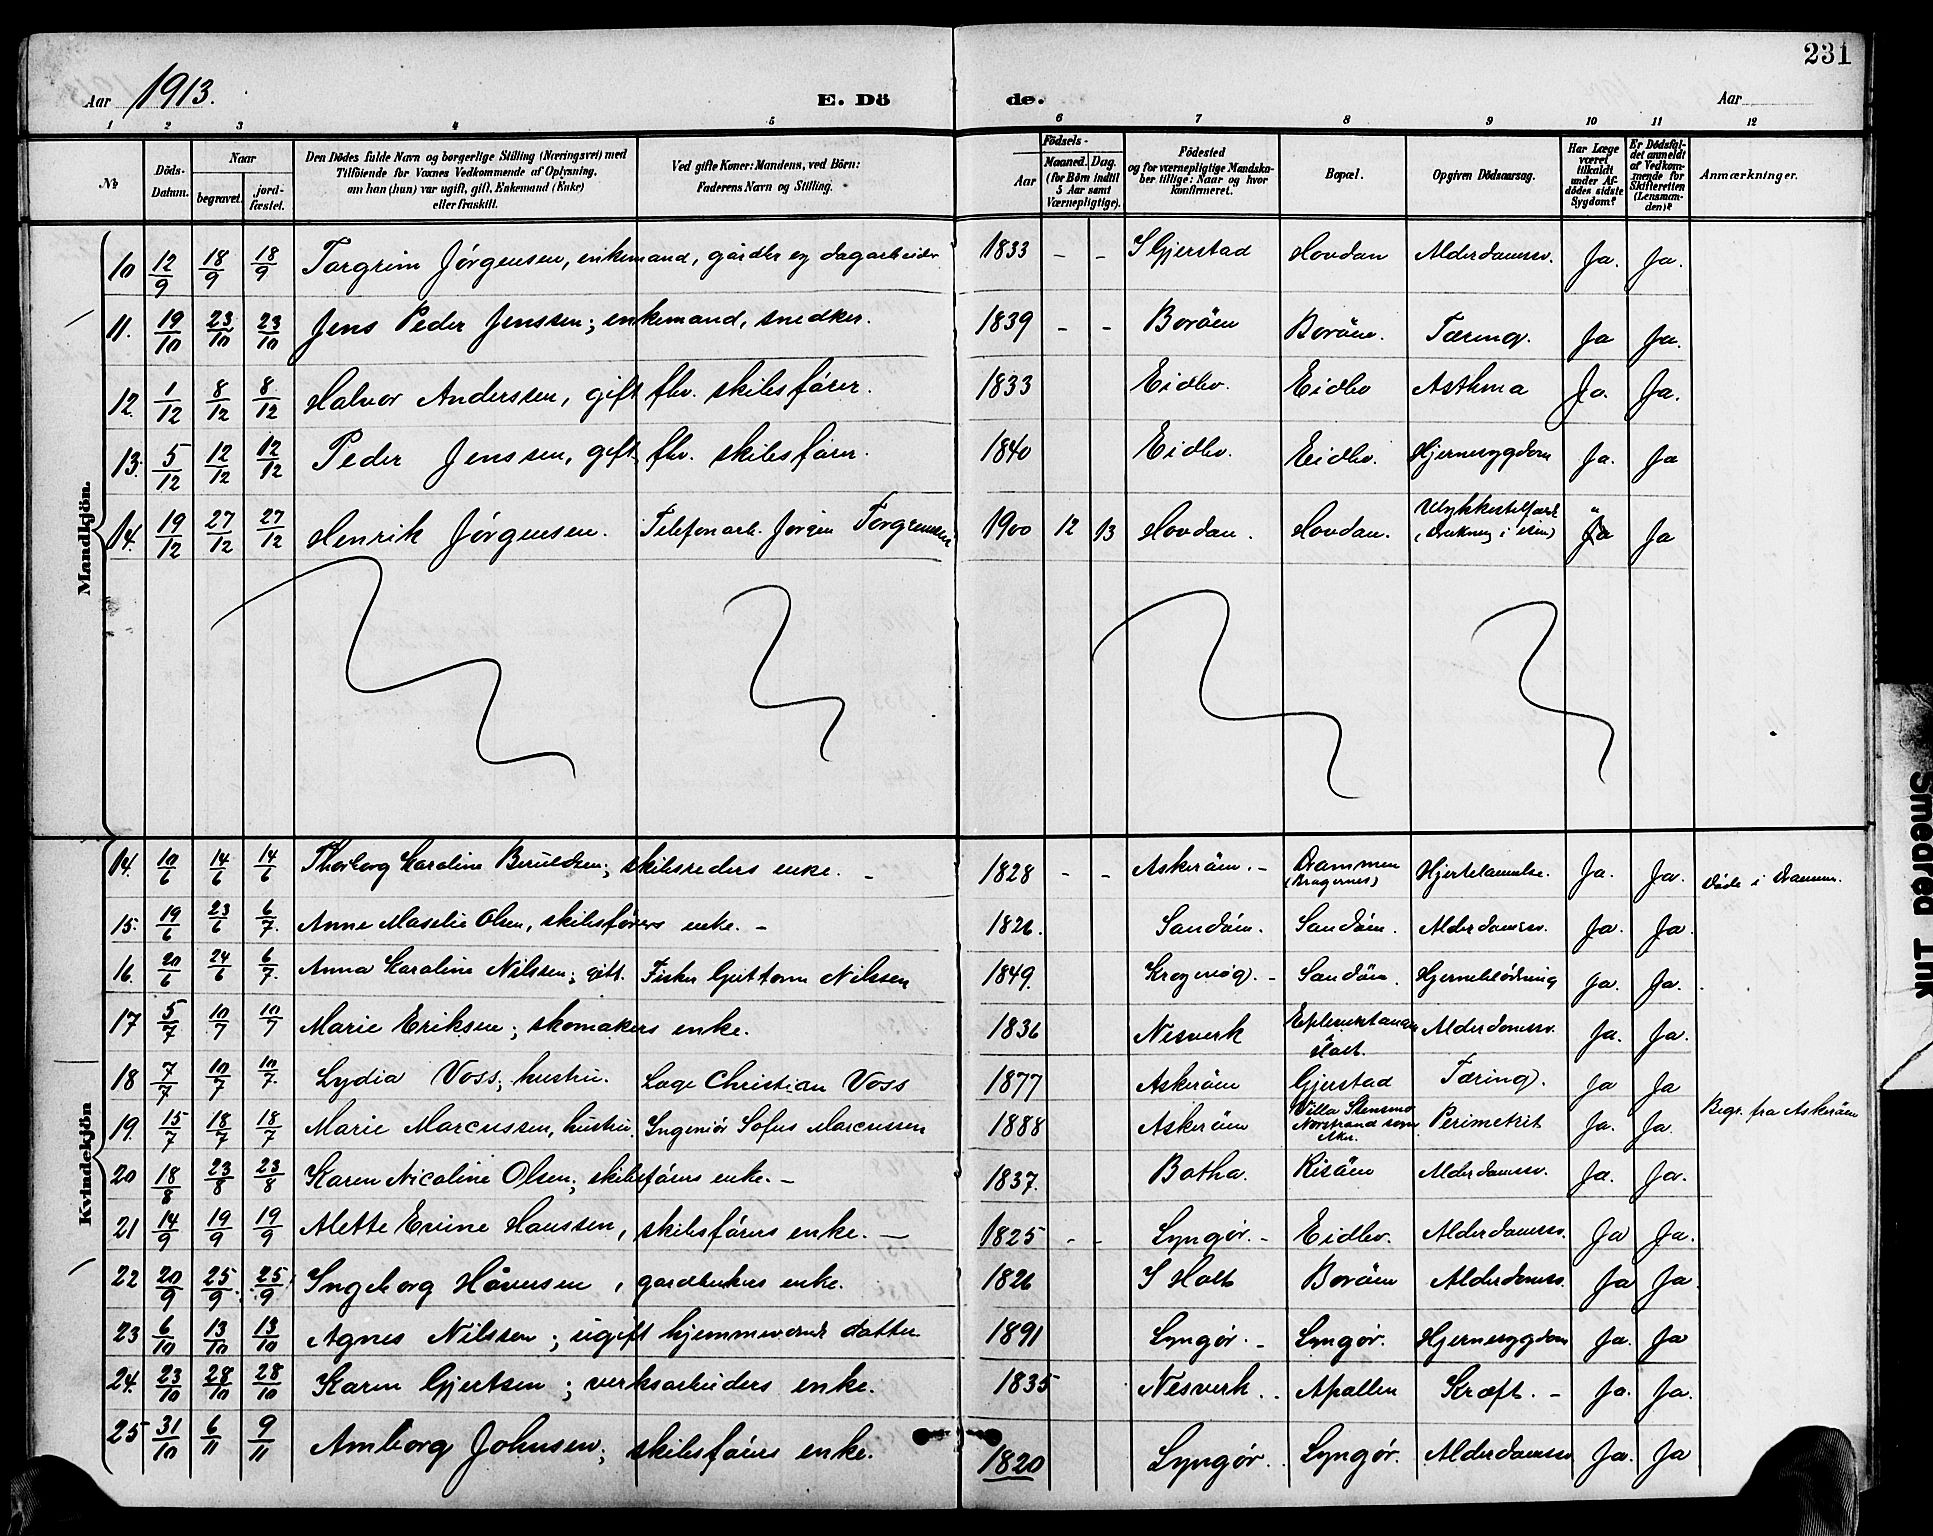 231
Aar 1913. E. Dö de. Aar
1 2 3 4 5 6 7 8 9 10 11 12
№ Döds-Datum. Naar begravet. jord-fæstet. Den Dödes fulde Navn og borgerlige Stilling (Næringsvei) med Tilföiende for Voxnes Vedkommende af Oplysning, om han (hun) var ugift, gift, Enkemand (Enke) eller fraskilt. Ved gifte Koner: Mandens, ved Börn: Faderens Navn og Stilling. Aar Födsels- Maaned. Dag. (for Börn indtil 5 Aar samt Værnepligtige). Födested og for værnepligtige Mandskaber tillige: Naar og hvor konfirmeret. Bopæl. Opgiven Dödsaarsag. Har Læge været tilkaldt under Afdödes sidste Sygdom? Er Dödsfaldet anmeldt af Vedkommende for Skifteretten (Lensmanden)? Anmærkninger.
Mandkjön.
10 12/9 18/9 18/9 Torgrim Jörgensen, enkemand, gårdbr og dagarbeider 1833 - - I Gjerstad Hovdan Alderdomssv. Ja. Ja.
11. 19/10 23/10 23/10 Jens Peder Jenssen; enkemand, snedker. 1839 - - Boröen Boröen. Tæring. Ja Ja.
12. 1/12 8/12 8/12 Halvor Anderssen, gift fhv. skibsförer. 1833 Eidbo. Eidbo Asthma Ja. Ja.
13. 5/12 12/12 12/12 Peder Jenssen, gift fhv. skibsförer. 1840 Eidbo. Eidbo. Hjernesygdom Ja. Ja
14. 19/12 27/12 27/12 Henrik Jörgensen. Telefonarb. Jörgen Torgrimsen 1900 12 13 Hovdan. Hovdan. Ulykkestilfæld (Drukning i isen) " Ja Ja
Kvindekjön
14. 10/6 14/6 14/6 Thorborg Karoline Beruldsen; skibsreders enke. - 1828 - - Askeröen. - Drammen (Bragernes) Hjertelammelse. Ja. Ja. Döde i Drammen.
15. 19/6 23/6 6/7. Anne Maselie Olsen, skibsförers enke. - 1826. Sandöen. Sandöen. Alderdomssv. Ja. Ja.
16. 20/6 24/6 6/7. Anna Karoline Nilssen; gift. Fisker Guttorm Nilssen 1849. - Sandöen. Hjerneblödning Ja. Ja.
17 5/7 10/7 10/7 Marie Eriksen; skomakers enke. 1836 Nesverk Holt. Alderdomssv. Ja. Ja.
18 7/7 10/7 10/7. Lydia Voss; hustru. Læge Christian Voss 1877 Askeröen Gjerstad Tæring. Ja Ja
19. 15/7 18/7 18/7 Marie Marcussen, hustru. Ingeniör Sofus Marcussen 1888 Askeröen Villa Stensmo Nordstrand sogn Aker. Perimetrit Ja. Ja. Begr. fra Askeröen
20 18/8 23/8 23/8 Karen Nicoline Olsen; skibsförers enke. - 1837. Botha. Risöen Alderdomssv. Ja. Ja.
21 14/9 19/9 19/9 Alette Evine Hanssen, skibsförers enke. - 1825 - - Lyngör. - Eidbo. Alderdomssv. Ja Ja.
22 20/9 25/9 25/9 Ingeborg Håversen, gardbrukers enke. 1826 I Holt Boröen Alderdomssv. Ja Ja.
23 6/10 13/10 13/10 Agnes Nilssen; ugift hjemmeværende datter. 1891 Lyngör. - Lyngör. Hjernesygdom Ja. Ja
24. 23/10 28/10 28/10 Karen Gjertsen; verksarbeiders enke. 1835 Nesverk. Apallen Kræft. - Ja. Ja.
25 31/10 6/11 9/11 Amborg Johnsen; skibsförers enke. 1820 Lyngör. Lyngör. Alderdomssv Ja. Ja
Smeared Ink